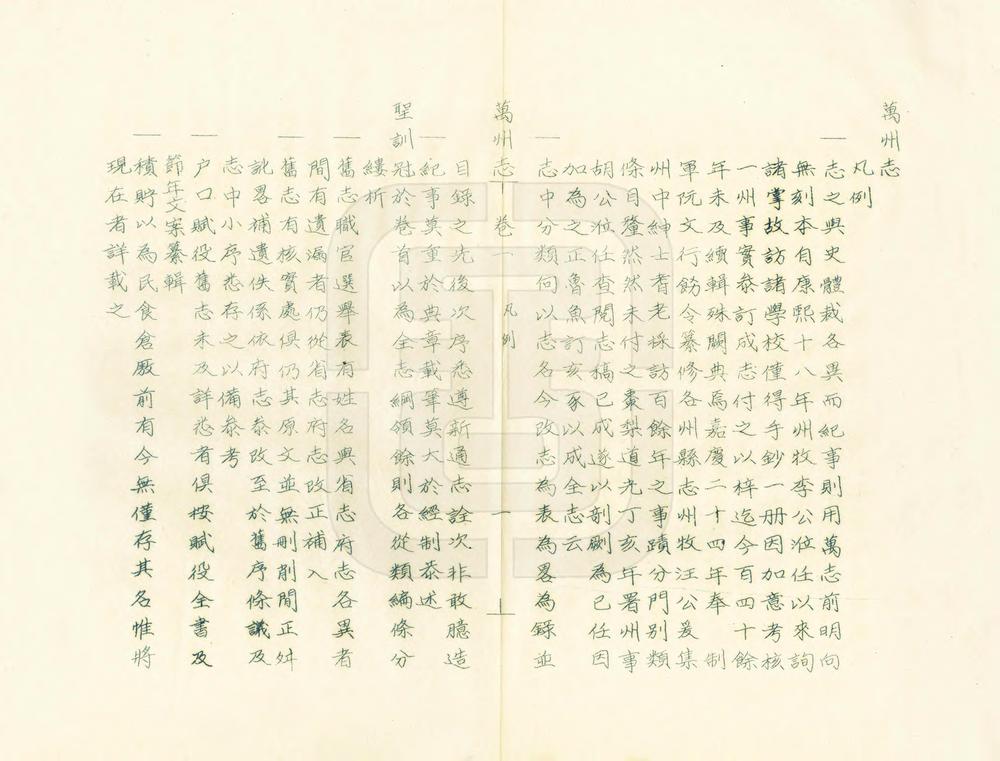 萬州志
凡例
一志之與史體裁各異而紀事則用萬志前明向
無刻本自康熙十八年州牧李公涖任以來詢
諸掌故訪諸學校僅得手鈔一册因加意考核
一州事實叅訂成志付之以梓迄今百四十餘
年未及續輯殊闕典焉嘉慶二十四年奉 制
軍阮文行飭令纂修各州縣志州牧汪公爰集
州中紳士耆老採訪百餘年之事蹟分門別類
條目釐然然未付之棗梨道光丁亥年署州事
胡公涖任查閱志稿已成遂以剞劂為己任因
加為之正魯魚訂亥豕以成全志云
一志中分類向以志名今改志為表為畧為錄並
萬州志 卷一 凡例 一
目錄之先後次序悉遵新通志詮次非敢臆造
一紀事莫重於典章載筆莫大於經制恭述
聖訓冠於卷首以為全志綱領餘則各從類編條分
縷析
一舊志職官選舉表有姓名與省志府志各異者
間有遺漏者仍從省志府志改正補入
一舊志有核實處俱仍其原文並無刪削間正舛
訛畧補遺佚係依府志叅改至於舊序條議及
志中小序悉存之以備叅考
一户口賦役舊志未及詳悉者俱按賦役全書及
節年文案纂輯
一積貯以為民食倉厫前有今無僅存其名惟將
現在者詳載之